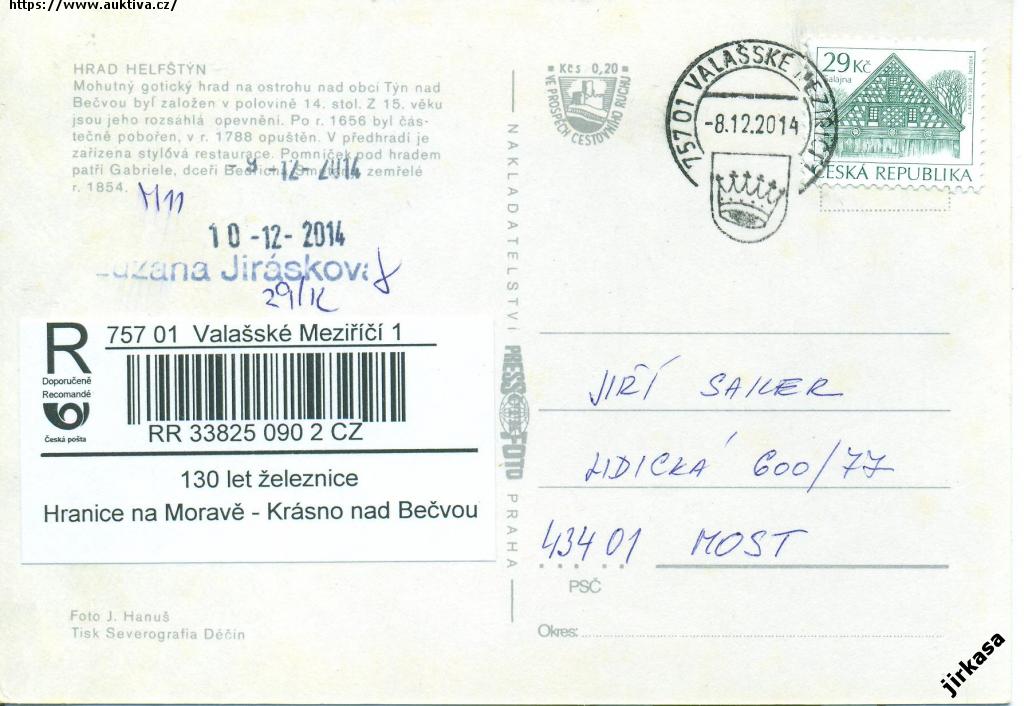 https://www.auktiva.cz/
HRAD HELFŠTÝN
Mohutný gotický hrad na ostrohu nad obcí Týn nad
Bečvou byl založen v polovině 14. stol. Z 15. věku
jsou jeho rozsáhlá opevnění. Po r. 1656 byl čás-
tečně pobořen, v r. 1788 opuštěn. V předhradí je
zařízena stylová restaurace. Pomníček pod hradem
patří Gabriele, dceři Bedřicha Smetany, zemřelé
r. 1854.
9-12-2014
M11
10-12-2014
Zuzana Jirásková
29/K
R
Doporučeně
Recomandé
Česká pošta
757 01 Valašské Meziříčí 1
RR 33825 090 2 CZ
130 let železnice
Hranice na Moravě - Krásno nad Bečvou
Foto J. Hanuš
Tisk Severografia Děčín
NAKLADATELSTVÍ PRESSFOTO PRAHA
Kčs 0,20
VE PROSPĚCH CESTOVNÍHO RUCHU
757 01 VALAŠSKÉ MEZIŘÍČÍ 1
-8.12.2014
29 Kč
Salajna
ČESKÁ REPUBLIKA
JIŘÍ SAILER
LIDICKÁ 600/77
434 01 MOST
PSČ
Okres:
jirkasa